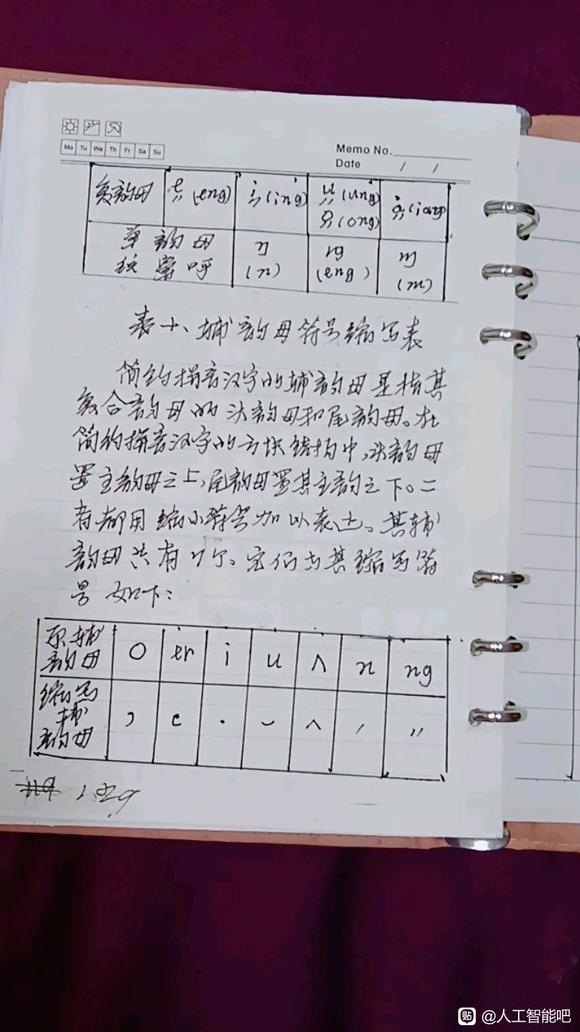 Memo No.
Mo Tu We Th Fr Sa Su
Date / /
复韵母 (eng) (ing) (ung) (ong) (iong)
单韵母 (n) (eng) (m)
表十、辅韵母符号缩写表
简约拼音汉字的辅韵母是指其
复合韵母的头韵母和尾韵母。在
简约拼音汉字的方块结构中,头韵母
置主韵母之上,尾韵母置其主韵之下。二
者都用缩小符号加以表达。其辅
韵母共有7个。它们与其缩写符
号如下:
原辅韵母 o er i u ʌ n ng
缩写辅韵母 , c · ⌣ ^ ′ ″
@人工智能吧